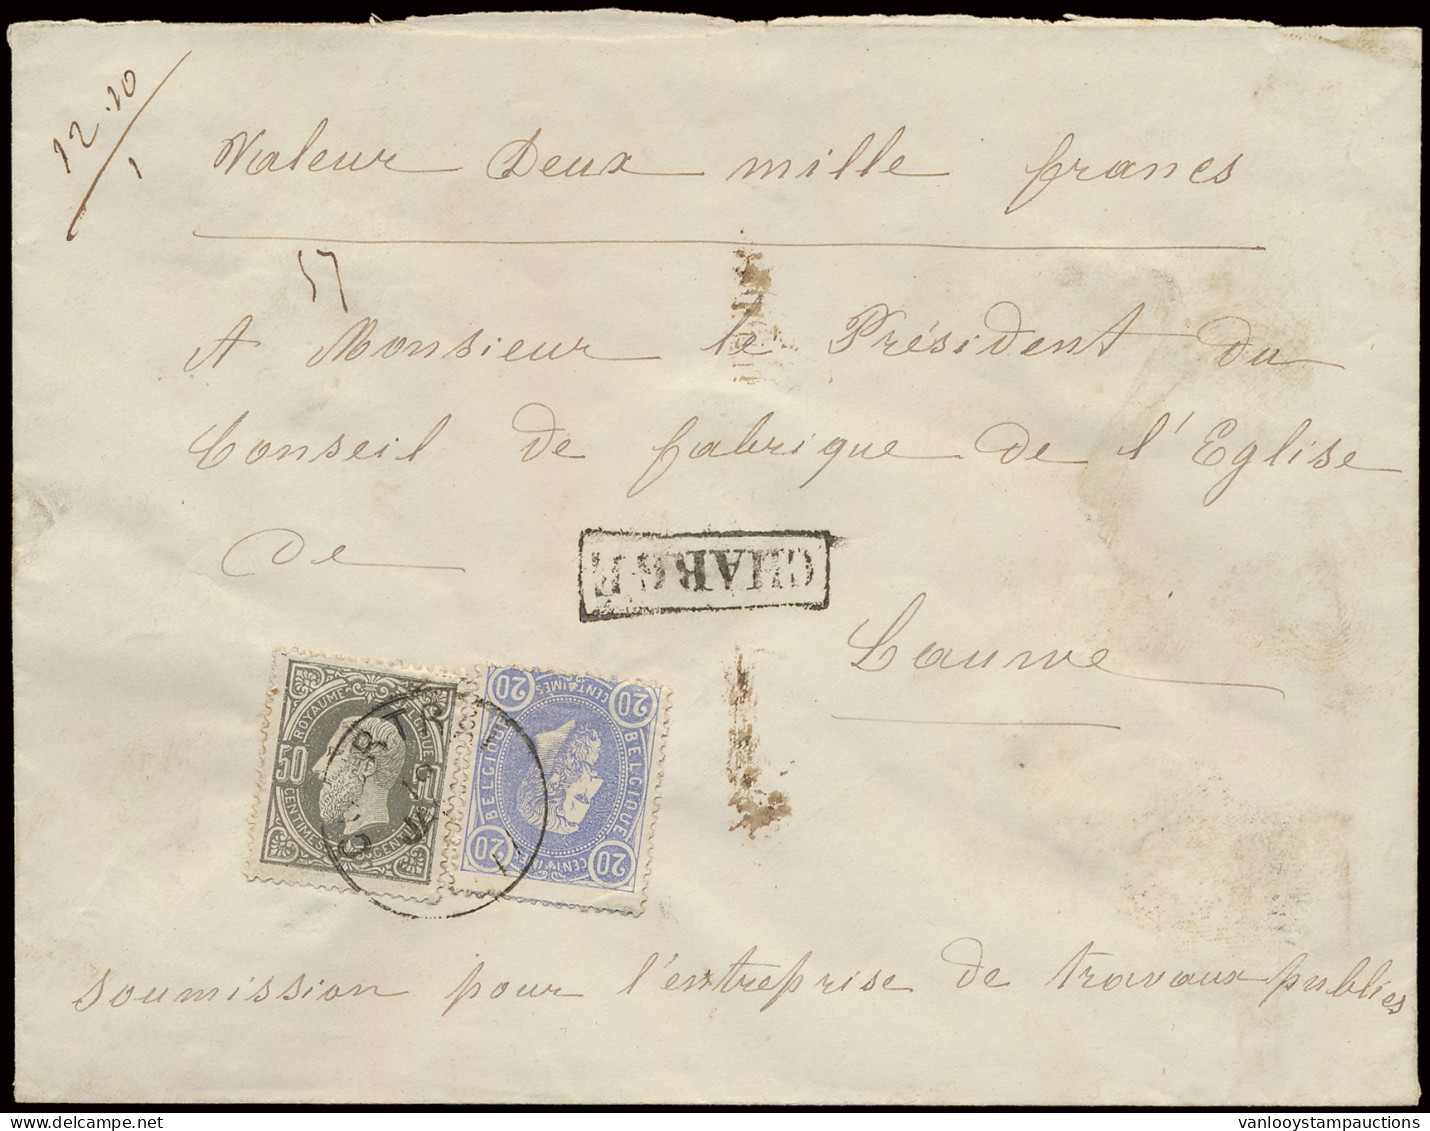 12.20
1
Valeur Deux mille francs
57
A Monsieur le Président du
Conseil de fabrique de l'Eglise
de
CHARGÉ
Lauwe
ROYAUME BELGIQUE
50
CENTIMES CENT
20 CENTIMES 20
BELGIQUE BELGIQUE
20 20
COURTR
12
soumission pour l'entreprise de travaux publics
vanlooystampauctions